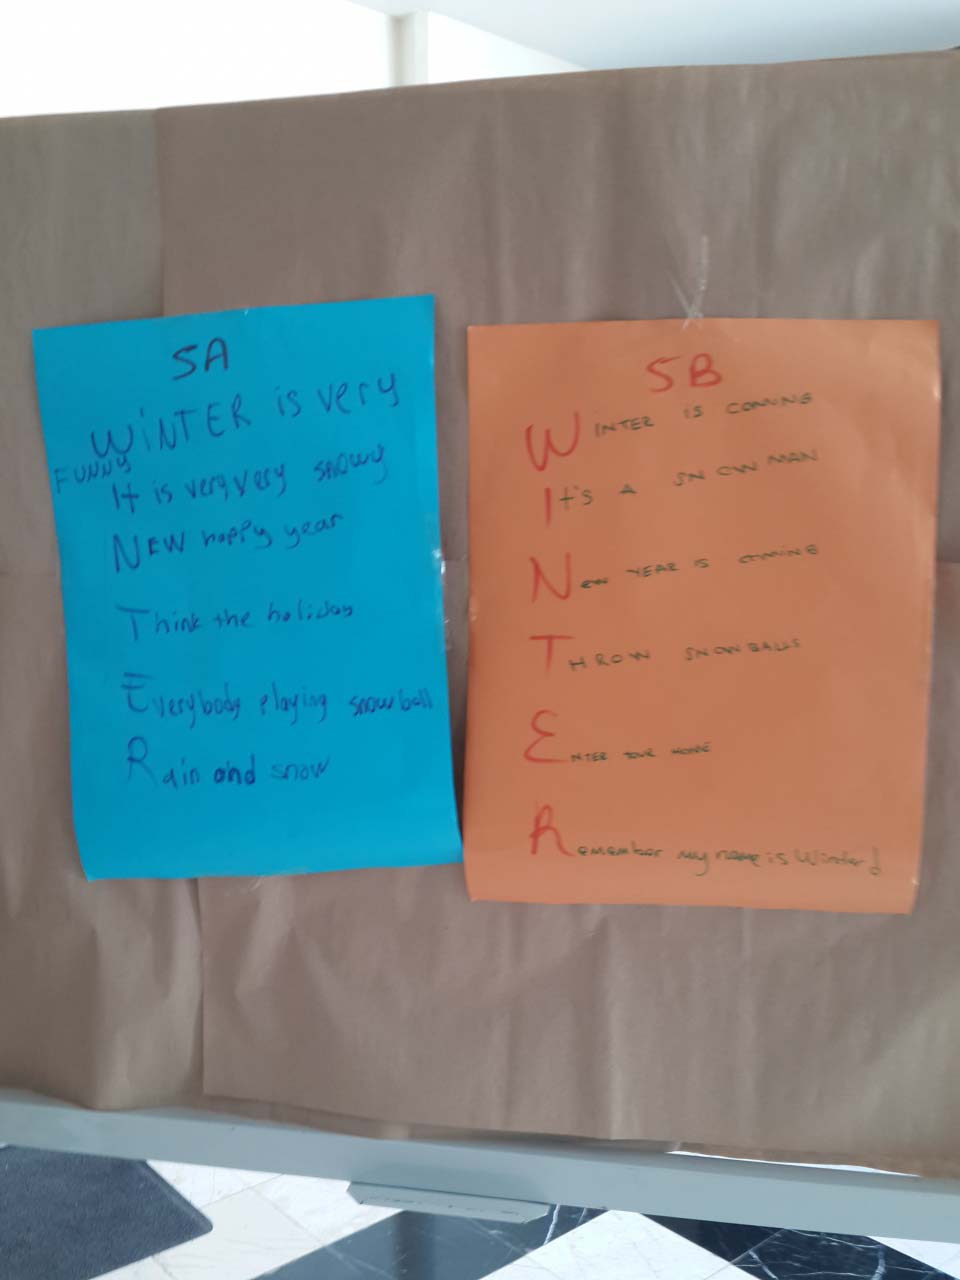 5A
WINTER is very
FUNNY
It is very very snowy
NEW happy year
Think the holiday
Everybody playing snowball
Rain and snow
5B
WINTER IS COMING
It'S A SNOWMAN
New YEAR IS COMING
THROW SNOWBALLS
ENTER YOUR HOME
Remember my name is Winter!